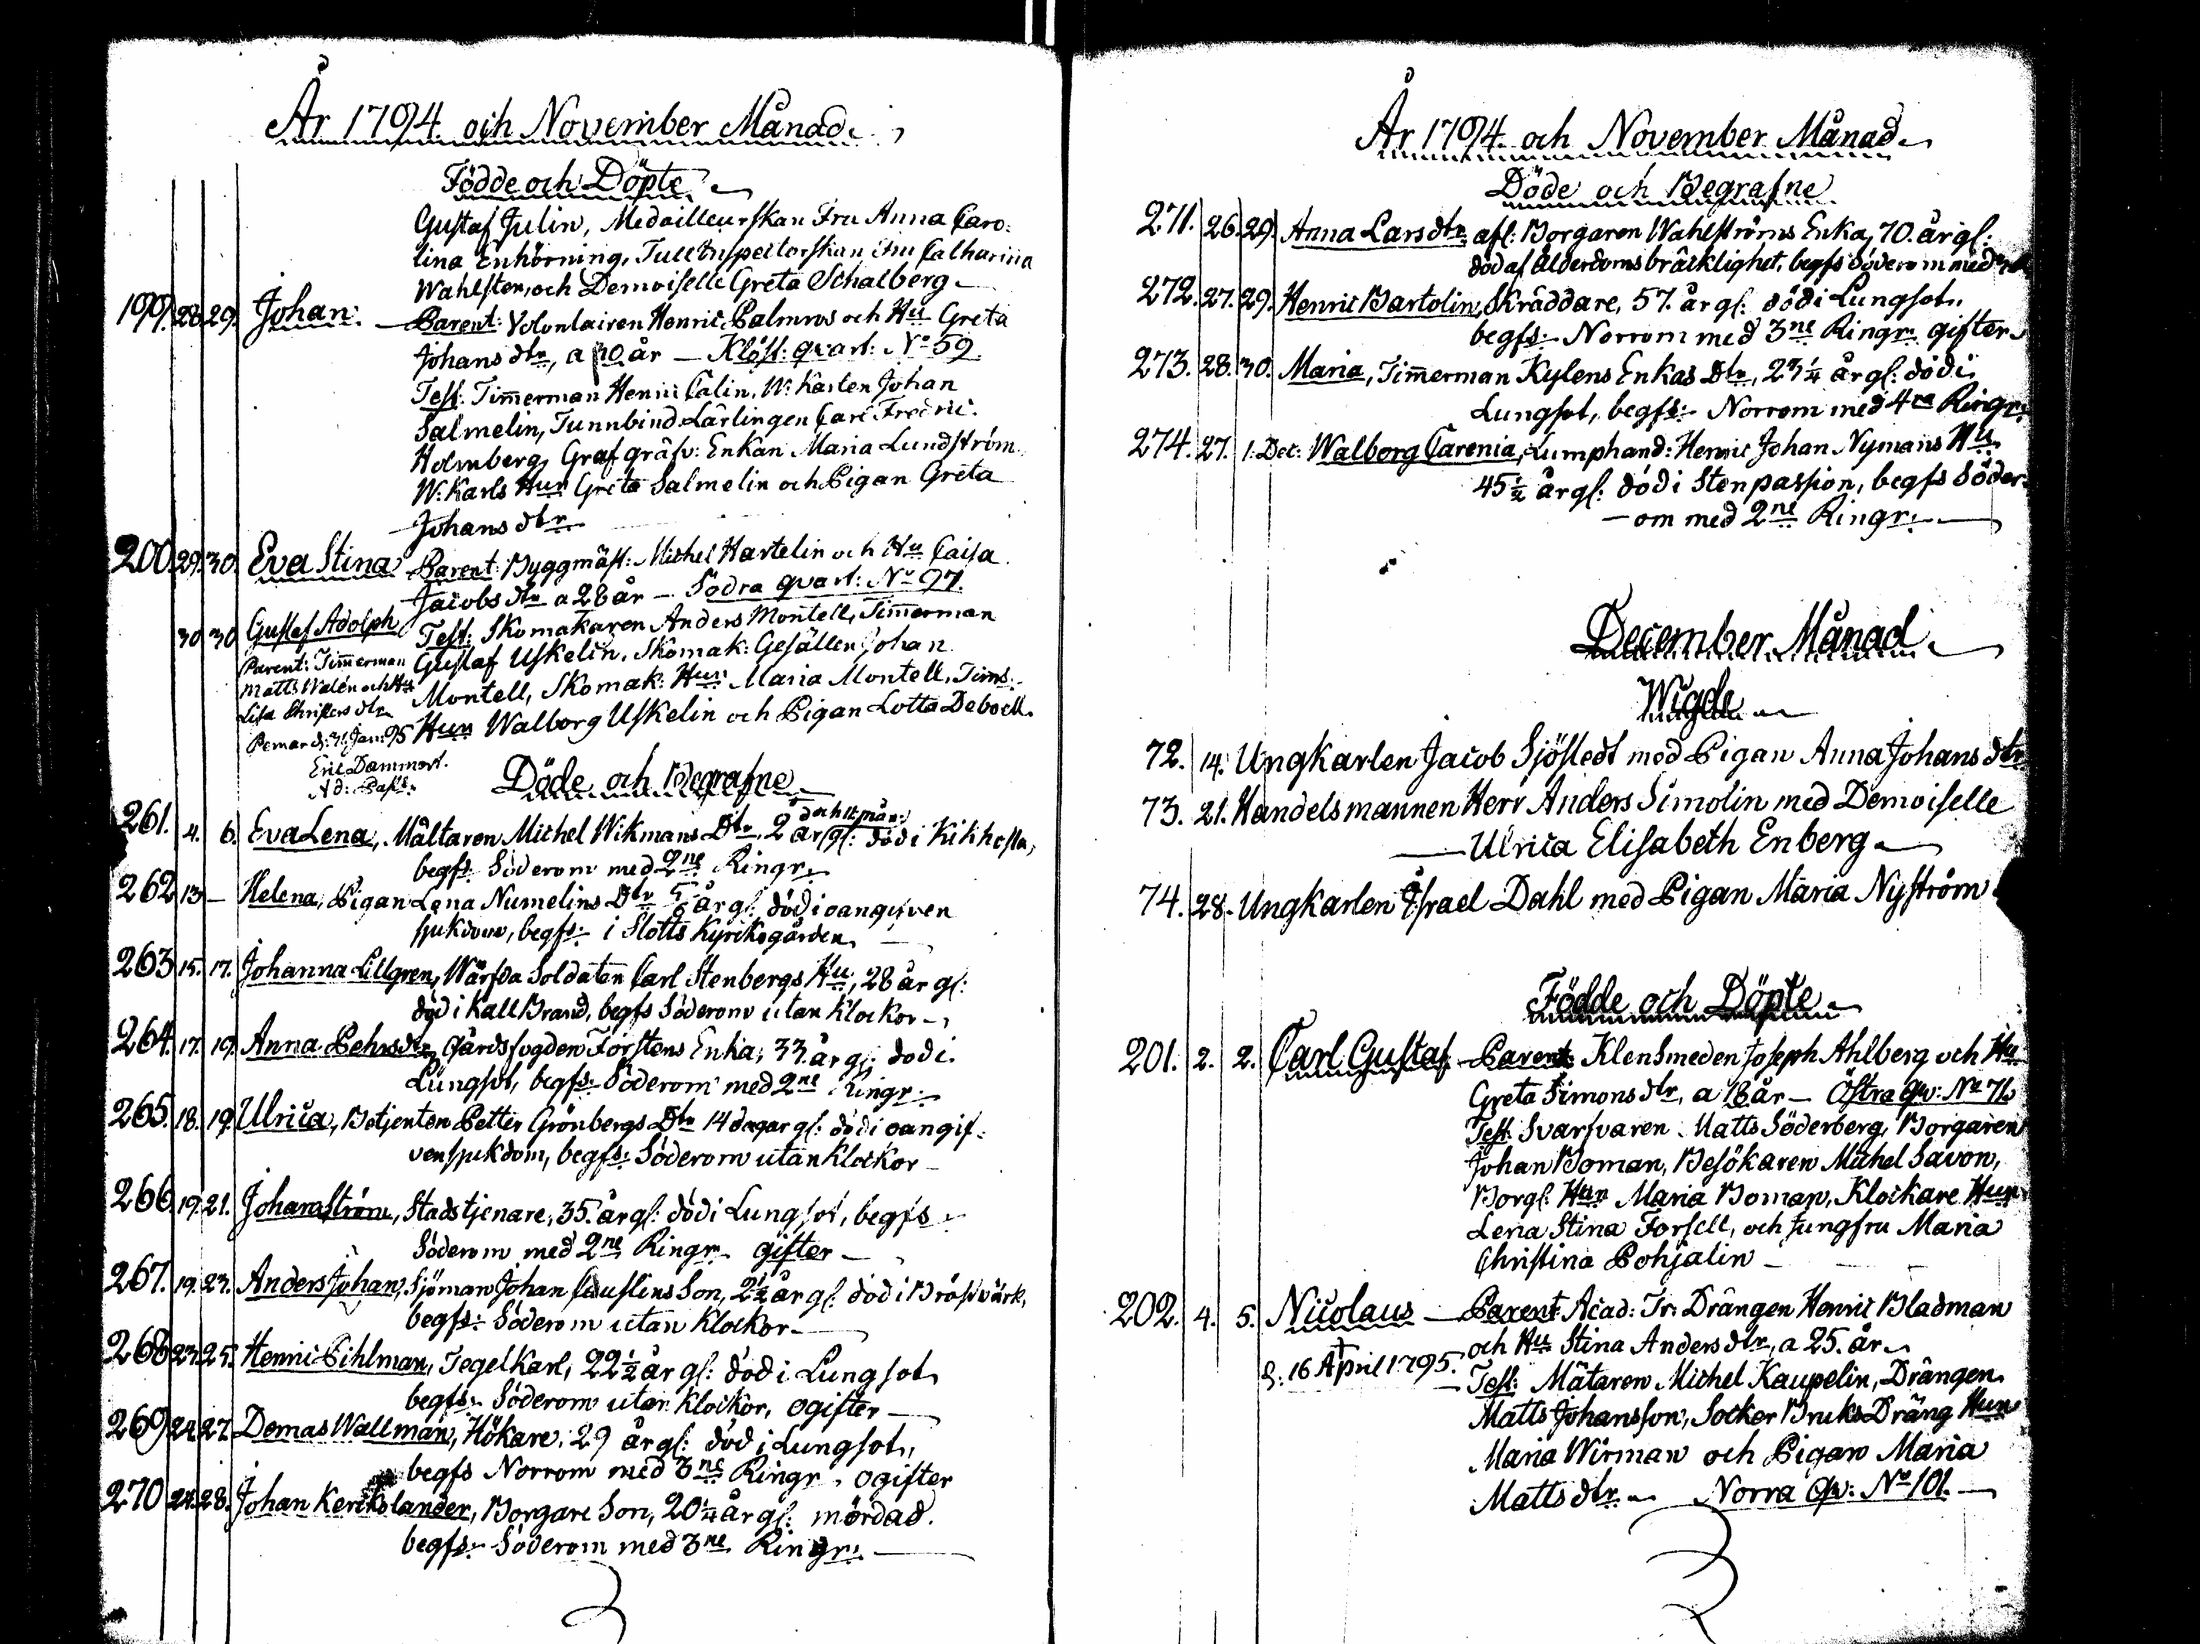 År 1794. och November Månad.
Födde och Döpte
Gustaf Julin, Medailleurskan Fru Anna Caro-
lina Enhörning, Tull Inspectorskan Fru Catharina
Wahlsten, och Demoiselle Greta Schalberg
199. 28. 29. Johan. Parent: Volontairen Henric Palmros och Hu Greta
Johans dtr, a 30 år — Klöst: qvart: No 59.
Test: Timmerman Henric Calin, W: Karlen Johan
Salmelin, Tunnbind. Lärlingen Carl Fredric
Holmberg, Graf gräfv: Enkan Maria Lundström
W: Karls Hun Greta Salmelin och Pigan Greta
Johans dtr
200. 29. 30. Eva Stina Parent: Byggmäst: Michel Hartelin och Hu Caisa
Jacobs dtr a 28 år — Södra qvart: No 97.
Test: Skomakaren Anders Montell, Timmerman
Gustaf Uskelin, Skomak: Gesällen Johan
Montell, Skomak: Hun Maria Montell, Tims:
Hun Walborg Uskelin och Pigan Lotta Debock.
30 30 Gustaf Adolph
Parent: Timmerman
Matts Walén och Hu
Lisa Christers dtr
Pemar d: 31 Jan: 95
Eric Dammert.
Ad: Past:
Döde och Begrafne
261. 4. 6. Eva Lena, Mältaren Michel Wikmans Dtr, 2 år och 11 mån: gl: död i Kikhosta,
begfs: Söderom med 2ne Ringr.
262. 13 — Helena, Pigan Lena Numelins Dtr 5/6 år gl: död i oangifven
sjukdom, begfs: i Slotts Kyrkogården
263. 15. 17. Johanna Lillgren, Wärfda Soldaten Carl Stenbergs Hu, 28 år gl:
död i Kall Brand, begfs Söderom utan Klockor
264. 17. 19. Anna Pehrs dtr, Gårdsfogden Forstens Enka, 33 år gl: död i
Lungsot, begfs: Söderom med 2ne Ringr:
265. 18. 19. Ulrica, Betjenten Petter Grönbergs Dtr 14 dagar gl: död i oangif-
ven sjukdom, begfs: Söderom utan Klockor
266. 19. 21. Johan Ström, Stadstjenare, 35. år gl: död i Lungsot, begfs
Söderom med 2ne Ringr. gifter
267. 19. 23. Anders Johan, Sjöman Johan Causlins Son, 2½ år gl: död i Bröstvärk,
begfs: Söderom utan Klockor
268 23. 25. Henric Pihlman, Tegelkarl, 22½ år gl: död i Lungsot
begfs: Söderom utan Klockor, ogifter
269 24. 27. Demas Wallman, Hökare, 29 år gl: död i Lungsot,
begfs Norrom med 3ne Ringr, ogifter
270 24. 28. Johan Kerkslander, Borgare Son, 20¼ år gl: mördad.
begfs: Söderom med 3ne Ringr:
År 1794. och November Månad
Döde och Begrafne
271. 26. 29. Anna Lars dtr, afl: Borgaren Wahlströms Enka, 70. år gl:
död af Ålderdoms bräcklighet, begfs Söderom med
272. 27. 29. Henric Bartolin, Skräddare, 57. år gl: död i Lungsot,
begfs: Norrom med 3ne Ringr. gifter
273. 28. 30. Maria, Timmerman Kylens Enkas Dtr, 23¼ år gl: död i
Lungsot, begfs: Norrom med 4ra Ringr:
274. 27. 1. Dec: Walborg Carenia, Lumphand: Henric Johan Nymans Hu
45½ år gl: död i Stenpassion, begfs Söder-
om med 2ne Ringr:
December Månad
Wigde
72. 14. Ungkarlen Jacob Sjöstedt med Pigan Anna Johans dtr
73. 21. Handelsmannen Herr Anders Simolin med Demoiselle
Ulrica Elisabeth Enberg
74. 28. Ungkarlen Israel Dahl med Pigan Maria Nyström
Födde och Döpte
201. 2. 2. Carl Gustaf Parent: Klensmeden Joseph Ahlberg och Hu
Greta Simons dtr, a 18 år — Östra Qv: No 71.
Test: Svarfvaren Matts Söderberg, Borgaren
Johan Boman, Besökaren Michel Savon,
Borgl: Hun Maria Boman, Klockare Hun
Lena Stina Forsell, och Jungfru Maria
Christina Pohjalin
202. 4. 5. Nicolaus Parent: Acad: Tr: Drängen Henric Bladman
och Hu Stina Anders dtr, a 25. år
† d: 16 April 1795.
Test: Mätaren Michel Kaupelin, Drängen
Matts Johansson, Socker Bruks Dräng Hun
Maria Wirman och Pigan Maria
Matts dtr Norra Qv: No 101.